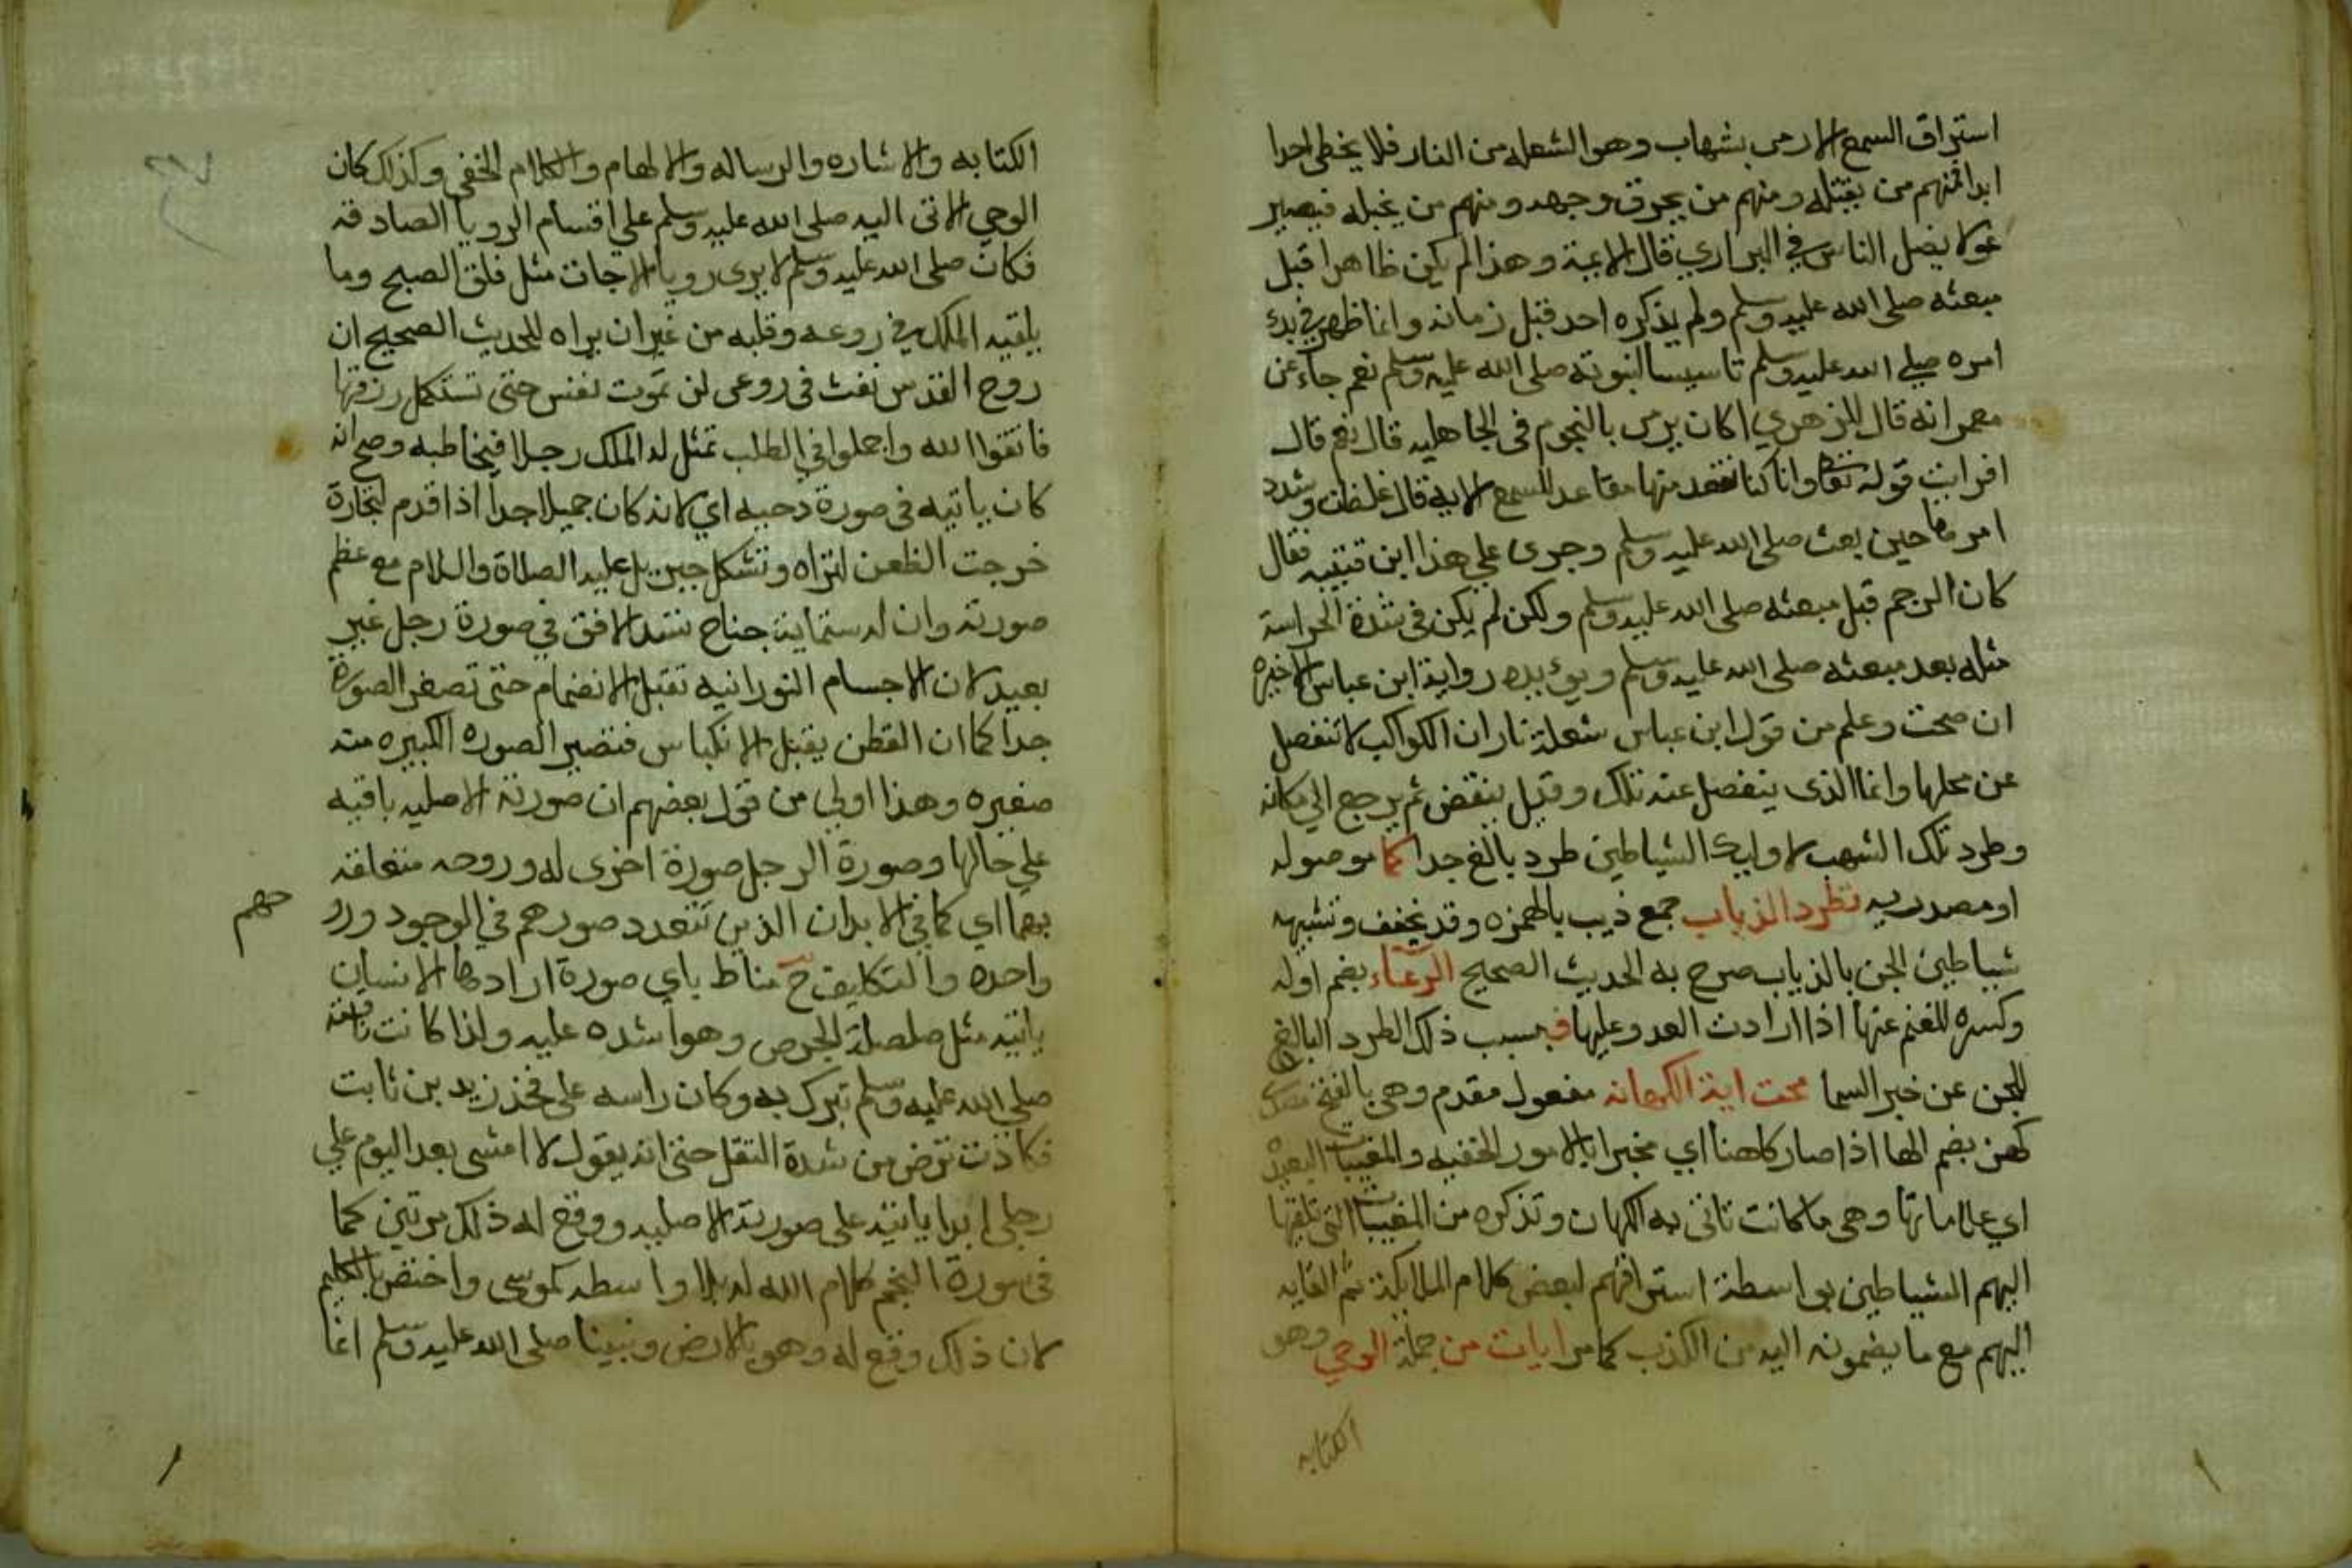 استراق السمع الا رمى بشهاب وهو الشعله من النار فلا يخطى احدا
ابدا فمنهم من يقتله ومنهم من يحرق وجهه ومنهم من يخبله فيصير
غولا يضل الناس في البراري قال الايمة وهذا لم يكن ظاهرا قبل
مبعثه صلى الله عليه وسلم ولم يذكره احد قبل زمانه وانما ظهر في بدئ
امره صلي الله عليه وسلم تاسيسا لنبوته صلى الله عليه وسلم نعم جاء عن
معمر انه قال للزهري اكان يرمى بالنجوم فى الجاهليه قال نعم قال
افرايت قوله تعا وانا كنا نقعد منها مقاعد للسمع الايه قال غلظت وشدد
امرها حين بعث صلى الله عليه وسلم وجرى علي هذا ابن قتيبه فقال
كان الرجم قبل مبعثه صلى الله عليه وسلم ولكن لم يكن فى شدة الحراسة
مثله بعد مبعثه صلى الله عليه وسلم ويويده رواية ابن عباس الاخيره
ان صحت وعلم من قول ابن عباس شعلة نار ان الكواكب لا تنفصل
عن محلها وانما الذى ينفصل عنه تلك وقيل ينقض ثم يرجع الي مكانه
وطرد تلك الشهب لاوليك الشياطين طرد بالغ جدا كما موصوله
او مصدريه تطرد الذياب جمع ذيب بالهمزه وقد يخفف وتشبيه
شياطين الجن بالذياب صرح به الحديث الصحيح الرعاء بضم اوله
وكسره للغنم عنها اذا ارادت العدو عليها فبسبب ذلك الطرد البالغ
للجن عن خبر السما محت اية الكهانه مفعول مقدم وهى بالفتح
كهن بضم الها اذا صار كاهنا اي مخبرا بالامور الخفيه والمغيبات البعيدة
اي علاماتها وهى ما كانت تاتى به الكهان وتذكره من المغيبات التى تلقيها
اليهم الشياطين بواسطة استراقهم لبعض كلام الملايكة ثم القايه
اليهم مع ما يضمونه اليه من الكذب كما مر ايات من جملة الوحي وهو
الكتابه
الكتابه والاشاره والرساله والالهام والكلام الخفي وكذلك كان
الوحي الاتى اليه صلى الله عليه وسلم علي اقسام الرويا الصادقه
فكان صلى الله عليه وسلم لا يرى رويا الا جات مثل فلق الصبح وما
يلقيه الملك في روعه وقلبه من غير ان يراه للحديث الصحيح ان
روح القدس نفث فى روعى لن تموت نفس حتى تستكمل رزقها
فاتقوا الله واجملوا في الطلب تمثل له الملك رجلا فيخاطبه وصح انه
كان ياتيه فى صورة دحيه اي لانه كان جميلا جدا اذا قدم لتجارة
خرجت الظعن لتراه وتشكل جبريل عليه الصلاة والسلام مع عظم
صورته وان له ستماية جناح تسد الافق في صورة رجل غير
بعيد لان الاجسام النورانيه تقبل الانضمام حتى تصغر الصورة
جدا كما ان القطن يقبل الانكباس فتصير الصوره الكبيره منه
صغيره وهذا اولي من قول بعضهم ان صورته الاصليه باقيه
علي حالها وصورة الرجل صورة اخرى له وروحه متعلقه
بهما اي كما في الابدان الذين تتعدد صورهم في الوجود
واحده والتكليف ح مناط باي صورة ارادها الانسان
ياتيه مثل صلصلة الجرس وهو اشده عليه واذا كانت ناقته
صلى الله عليه وسلم تبرك به وكان راسه على فخذ زيد بن ثابت
فكادت ترض من شدة الثقل حتى انه يقول لا امشى بعد اليوم علي
رجلي ابدا ياتيه على صورته الاصليه ووقع له ذلك مرتين كما
فى سورة النجم كلام الله له بلا واسطه كموسى واختص بالكليم
لان ذلك وقع له وهو بالارض ونبينا صلى الله عليه وسلم انما